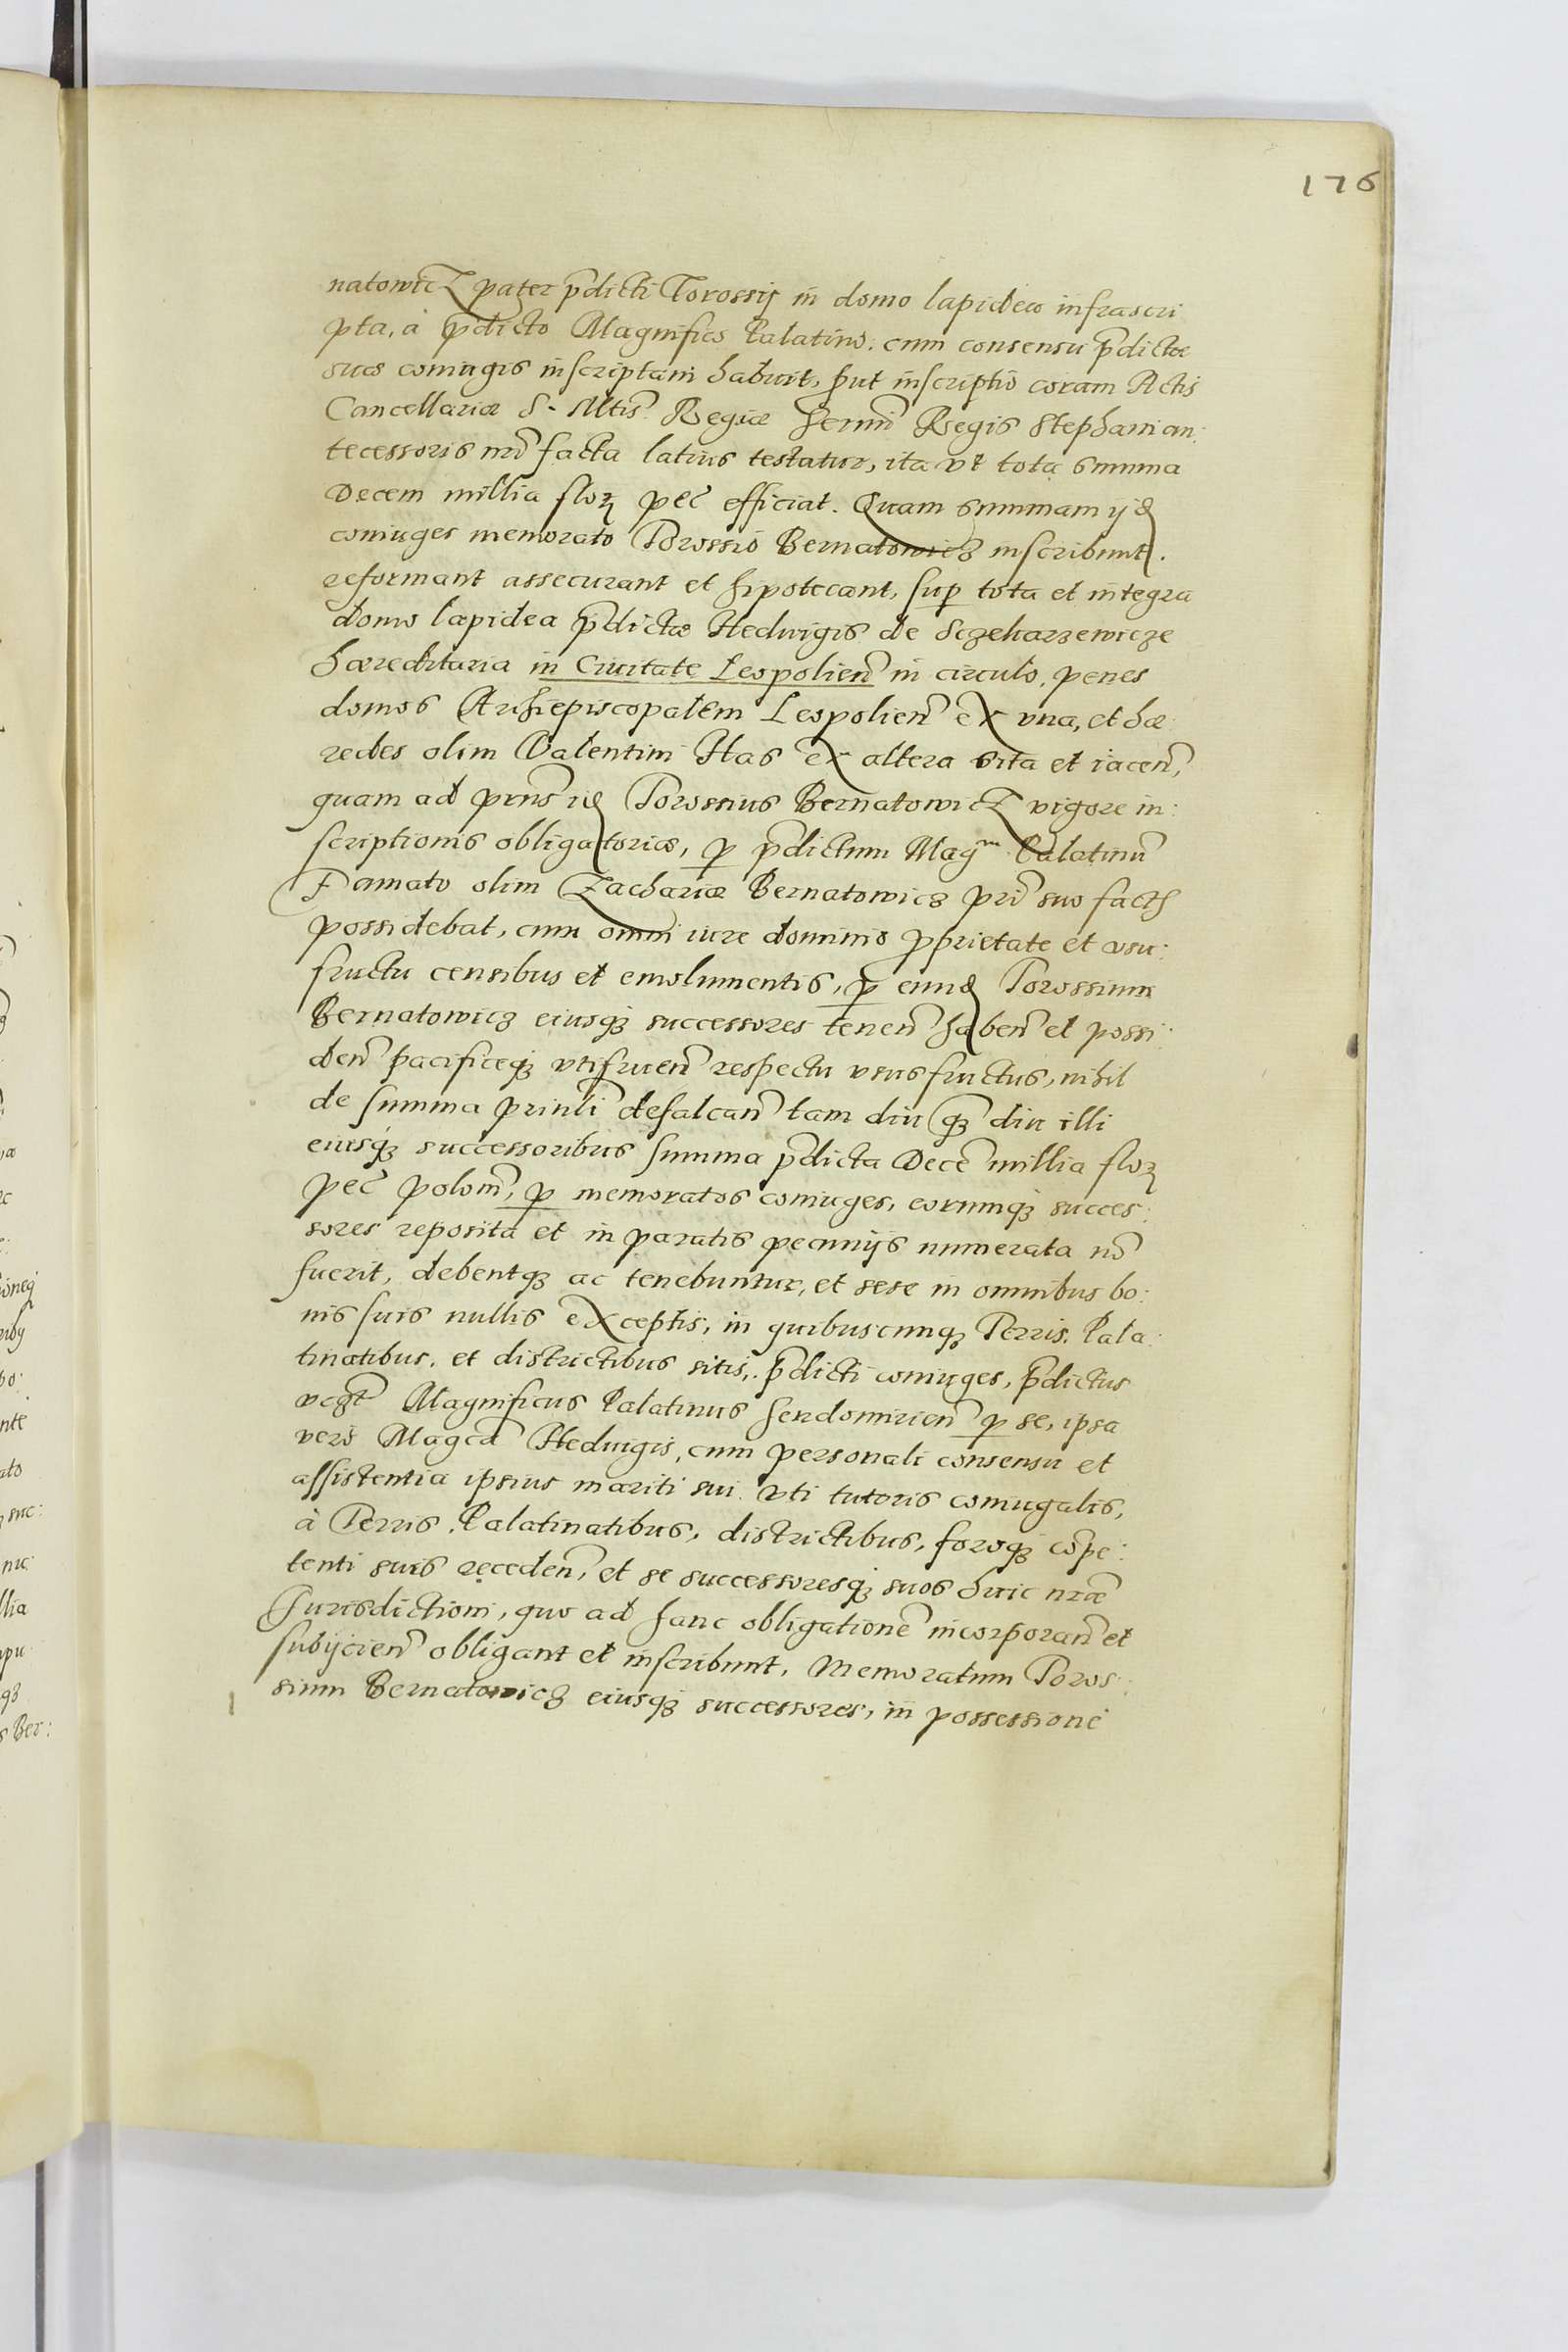 176
natowicz pater p̄dicti Torossij in domo lapidea infrascri
pta, à p̄dicto Magnifico Palatino. cum consensu p̄dictæ
suæ coniugis inscriptam habuit, put inscriptio coram Actis
Cancellariæ S. Mtis. Regiæ Sermi Regis Stephani an:
tecessoris nri facta latius testatur, ita vt tota summa
Decem millia flor pec̄ efficiat. Quam summam ijd
coniuges memorato Torossio Bernatowicz inscribunt.
reformant assecurant et hipotecant, sup tota et integra
domo lapidea p̄dictæ Hedwigis de
hæreditaria in Ciuitate Leopolien̄ in circulo, penes
domos Archiepiscopalem Leopolien̄ ex vna, et hæ
redes olim Valentini Has ex altera sita et iacen̄,
quam ad prns id Torossius Bernatowicz vigore in:
scriptionis obligatoriæ, p p̄dictum Magm Palatinū
Famato olim Zachariæ Bernatowicz pri suo factæ
possidebat, cum omni iure dominio pprietate et vsu:
fructu censibus et emolumentis, p eund Torossium
Bernatowicz eiusq3 successores tenen̄ haben̄ et possi:
den̄ pacificeq3 vtifruen̄ respectu vsusfructus, nihil
de summa prinli defalcan̄ tam diu q3 diu illi
eiusq3 successoribus summa p̄dicta Decē millia flor
pec̄ polon̄, p memoratos coniuges, eorumq3 succes:
sores reposita et in paratis pecunijs numerata nō
fuerit, debentq3 ac tenebuntur, et sese in omnibus bo:
nis suis nullis exceptis, in quibuscunq3 Terris. Pala:
tinatibus. et districtibus sitis, p̄dicti coniuges, p̄dictus
Magnificus Palatinus Sendomirien̄ p se, ipsa
verò Magca Hedwigis, cum personali consensu et
assistentia ipsius mariti sui vti tutoris coniugalis,
à Terris. Palatinatibus, districtibus, foroq3 cōpe:
tenti suis receden̄, et se successoresq3 suos huic nræ
Jurisdictioni, quo ad hanc obligationē incorporan̄ et
subijcien̄ obligant et inscribunt, Memoratum Toros:
sium Bernatowicz eiusq3 successores, in possessione